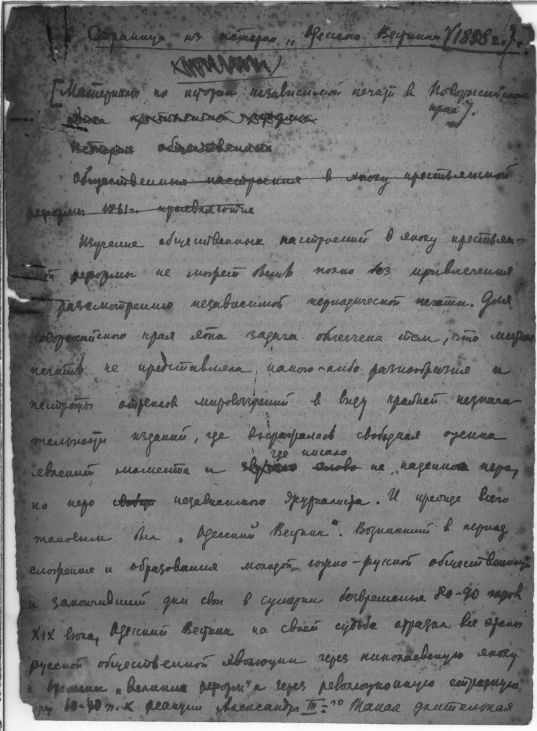 Страница из истории „Одесского Вестника" (1858 г.).
[Материалы по истории независимой печати в Новороссийском
крае].
эпоха крестьянской реформы
История общественных
Общественные настроения в эпоху крестьянской
реформы 1861 г. проявляются
Изучение общественных настроений в эпоху крестьян-
ской реформы не может быть полно без привлечения
к рассмотрению независимой периодической печати. Для
новороссийского края эта задача облегчена тем, что местная
печать не представляла какого-либо разнообразия и
пестроты оттенков мировоззрений в виду крайней незначи-
тельности изданий, где выражалась свободная оценка
явлений момента и где писало не „наемное перо",
но перо независимого журналиста. И прежде всего
таковым был „Одесский Вестник". Возникший в период
сложения и образования молодой южно-русской общественности
и закончивший дни свои в сумерки безвременья 80-90 годов
XIX века, Одесский Вестник на своей судьбе отразил все этапы
русской общественной эволюции через николаевскую эпоху
к времени „великих реформ" и через революционную страдную
пору 60-70 г. к реакции Александра III-го. Такая длительная